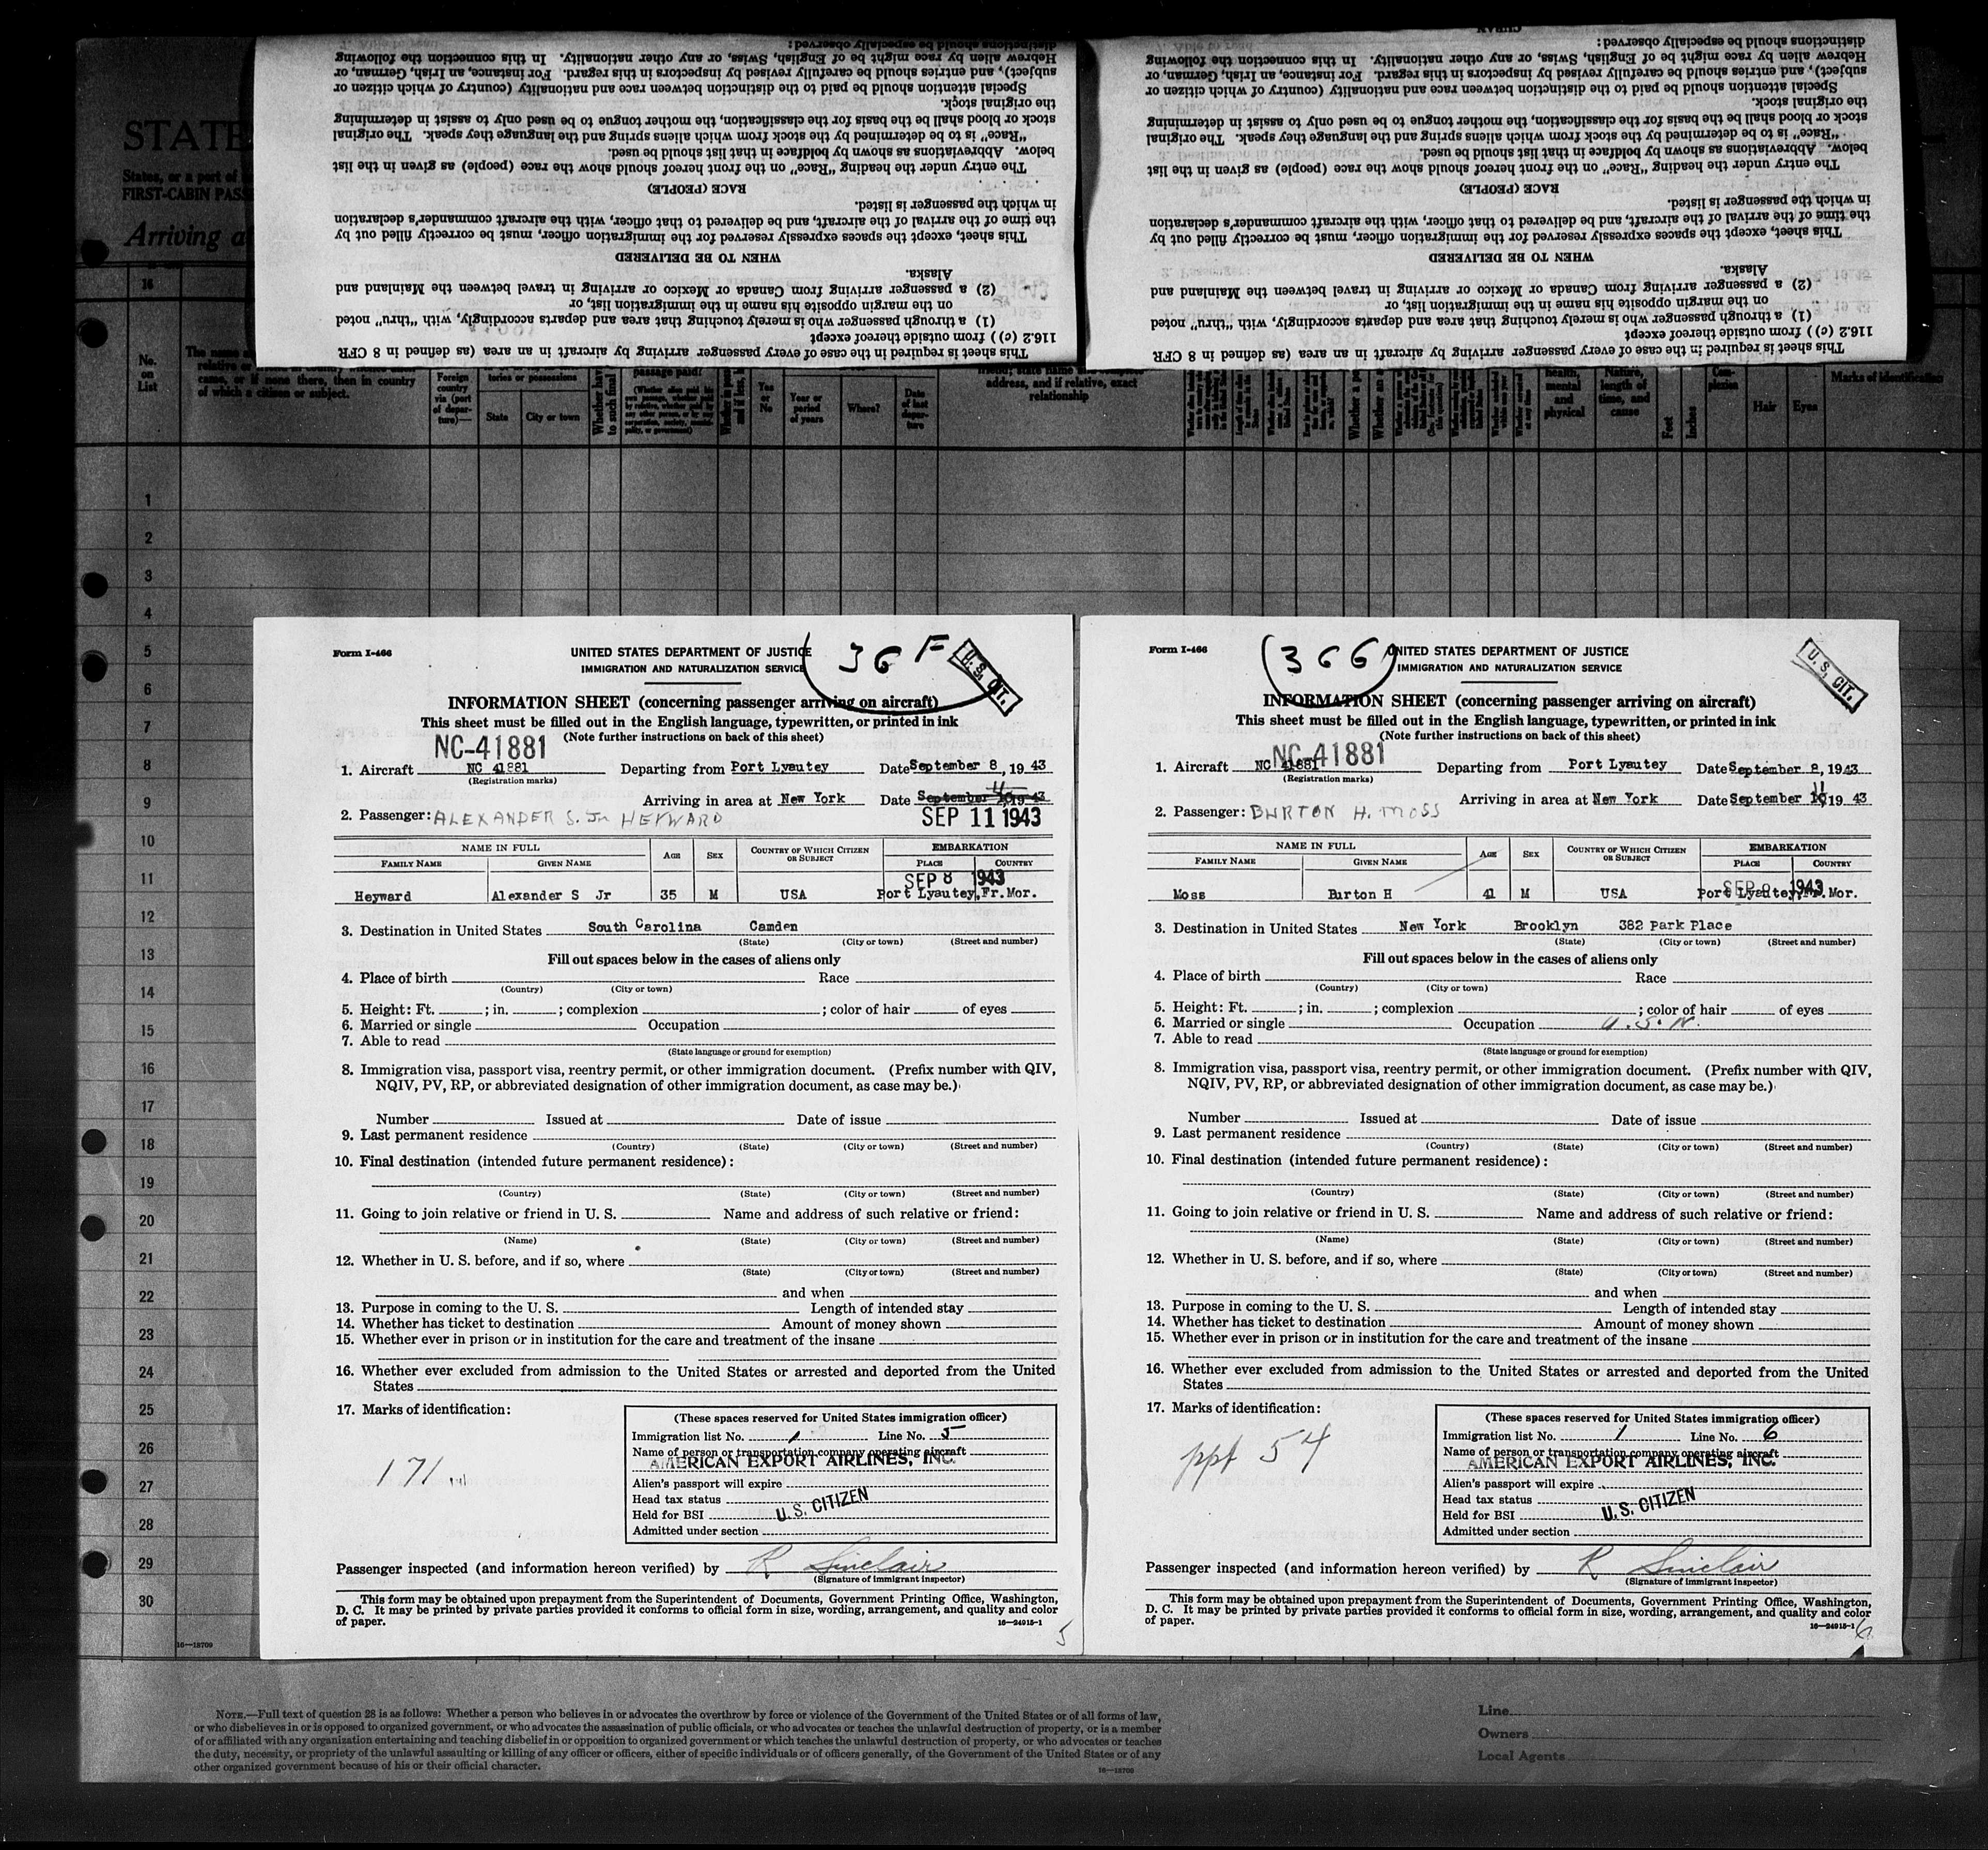 CUBAN
7. Able to read
distinctions should be especially observed:
Hebrew alien by race might be of English, Swiss, or any other nationality. In this connection the following
subject), and entries should be carefully revised by inspectors in this regard. For instance, an Irish, German, or
Special attention should be paid to the distinction between race and nationality (country of which citizen or
the original stock.
stock or blood shall be the basis for the classification, the mother tongue to be used only to assist in determining
"Race" is to be determined by the stock from which aliens spring and the language they speak. The original
below. Abbreviations as shown by boldface in that list should be used.
The entry under the heading "Race" on the front hereof should show the race (people) as given in the list
RACE (PEOPLE)
in which the passenger is listed.
the time of the arrival of the aircraft, and be delivered to that officer, with the aircraft commander's declaration
This sheet, except the spaces expressly reserved for the immigration officer, must be correctly filled out by
WHEN TO BE DELIVERED
Alaska.
(2) a passenger arriving from Canada or Mexico or arriving in travel between the Mainland and
on the margin opposite his name in the immigration list, or
(1) a through passenger who is merely touching that area and departs accordingly, with "thru" noted
116.2 (c)) from outside thereof except
This sheet is required in the case of every passenger arriving by aircraft in an area (as defined in 8 CFR
distinctions should be especially observed:
Hebrew alien by race might be of English, Swiss, or any other nationality. In this connection the following
subject), and entries should be carefully revised by inspectors in this regard. For instance, an Irish, German, or
Special attention should be paid to the distinction between race and nationality (country of which citizen or
the original stock.
stock or blood shall be the basis for the classification, the mother tongue to be used only to assist in determining
"Race" is to be determined by the stock from which aliens spring and the language they speak. The original
below. Abbreviations as shown by boldface in that list should be used.
The entry under the heading "Race" on the front hereof should show the race (people) as given in the list
RACE (PEOPLE)
in which the passenger is listed.
the time of the arrival of the aircraft, and be delivered to that officer, with the aircraft commander's declaration
This sheet, except the spaces expressly reserved for the immigration officer, must be correctly filled out by
WHEN TO BE DELIVERED
Alaska.
(2) a passenger arriving from Canada or Mexico or arriving in travel between the Mainland and
on the margin opposite his name in the immigration list, or
(1) a through passenger who is merely touching that area and departs accordingly, with "thru" noted
116.2 (c)) from outside thereof except
This sheet is required in the case of every passenger arriving by aircraft in an area (as defined in 8 CFR
STATE
States, or a part of
FIRST-CABIN PASS
Arriving a
16
No. on List
came, or if none there, then in country
of which a citizen or subject.
Foreign country via (port of departure)—
tories or possessions
State City or town
passage paid?
Yes or No
Year or period of years
Where?
Date of last departure
address, and if relative, exact
relationship
health, mental and physical
Nature, length of time, and cause
Feet Inches
Complexion
Hair Eyes
Marks of identification
1
2
3
4
5
6
7
8
9
10
11
12
13
14
15
16
17
18
19
20
21
22
23
24
25
26
27
28
29
30
16—13709
Form I-466
UNITED STATES DEPARTMENT OF JUSTICE
IMMIGRATION AND NATURALIZATION SERVICE
36 F
U. S. CIT.
INFORMATION SHEET (concerning passenger arriving on aircraft)
This sheet must be filled out in the English language, typewritten, or printed in ink
(Note further instructions on back of this sheet)
NC-41881
1. Aircraft NC 41881 Departing from Port Lyautey Date September 8, 19 43
(Registration marks)
Arriving in area at New York Date September 11 19 43
2. Passenger: ALEXANDER S. Jr HEYWARD SEP 11 1943
NAME IN FULL AGE SEX COUNTRY OF WHICH CITIZEN OR SUBJECT EMBARKATION
FAMILY NAME GIVEN NAME PLACE COUNTRY
SEP 8 1943
Heyward Alexander S Jr 35 M USA Port Lyautey, Fr. Mor.
3. Destination in United States South Carolina Camden
(State) (City or town) (Street and number)
Fill out spaces below in the cases of aliens only
4. Place of birth Race
(Country) (City or town)
5. Height: Ft. ; in. ; complexion ; color of hair of eyes
6. Married or single Occupation
7. Able to read
(State language or ground for exemption)
8. Immigration visa, passport visa, reentry permit, or other immigration document. (Prefix number with QIV,
NQIV, PV, RP, or abbreviated designation of other immigration document, as case may be.)
Number Issued at Date of issue
9. Last permanent residence
(Country) (State) (City or town) (Street and number)
10. Final destination (intended future permanent residence):
(Country) (State) (City or town) (Street and number)
11. Going to join relative or friend in U. S. Name and address of such relative or friend:
(Name) (State) (City or town) (Street and number)
12. Whether in U. S. before, and if so, where
(State) (City or town) (Street and number)
and when
13. Purpose in coming to the U. S. Length of intended stay
14. Whether has ticket to destination Amount of money shown
15. Whether ever in prison or in institution for the care and treatment of the insane
16. Whether ever excluded from admission to the United States or arrested and deported from the United
States
17. Marks of identification:
171
(These spaces reserved for United States immigration officer)
Immigration list No. 1 Line No. 5
Name of person or transportation company operating aircraft
AMERICAN EXPORT AIRLINES, INC.
Alien's passport will expire
Head tax status
U. S. CITIZEN
Held for BSI
Admitted under section
Passenger inspected (and information hereon verified) by R Sinclair
(Signature of immigrant inspector)
This form may be obtained upon prepayment from the Superintendent of Documents, Government Printing Office, Washington,
D. C. It may be printed by private parties provided it conforms to official form in size, wording, arrangement, and quality and color
of paper.
16—24915-1
5
Form I-466
UNITED STATES DEPARTMENT OF JUSTICE
IMMIGRATION AND NATURALIZATION SERVICE
366
U. S. CIT.
INFORMATION SHEET (concerning passenger arriving on aircraft)
This sheet must be filled out in the English language, typewritten, or printed in ink
(Note further instructions on back of this sheet)
NC-41881
1. Aircraft NC 41881 Departing from Port Lyautey Date September 8, 1943
(Registration marks)
Arriving in area at New York Date September 11 19 43
2. Passenger: BURTON H. MOSS
NAME IN FULL AGE SEX COUNTRY OF WHICH CITIZEN OR SUBJECT EMBARKATION
FAMILY NAME GIVEN NAME PLACE COUNTRY
SEP 8 1943
Moss Burton H 41 M USA Port Lyautey, Fr. Mor.
3. Destination in United States New York Brooklyn 382 Park Place
(State) (City or town) (Street and number)
Fill out spaces below in the cases of aliens only
4. Place of birth Race
(Country) (City or town)
5. Height: Ft. ; in. ; complexion ; color of hair of eyes
6. Married or single Occupation U.S.N.
7. Able to read
(State language or ground for exemption)
8. Immigration visa, passport visa, reentry permit, or other immigration document. (Prefix number with QIV,
NQIV, PV, RP, or abbreviated designation of other immigration document, as case may be.)
Number Issued at Date of issue
9. Last permanent residence
(Country) (State) (City or town) (Street and number)
10. Final destination (intended future permanent residence):
(Country) (State) (City or town) (Street and number)
11. Going to join relative or friend in U. S. Name and address of such relative or friend:
(Name) (State) (City or town) (Street and number)
12. Whether in U. S. before, and if so, where
(State) (City or town) (Street and number)
and when
13. Purpose in coming to the U. S. Length of intended stay
14. Whether has ticket to destination Amount of money shown
15. Whether ever in prison or in institution for the care and treatment of the insane
16. Whether ever excluded from admission to the United States or arrested and deported from the United
States
17. Marks of identification:
ppt 54
(These spaces reserved for United States immigration officer)
Immigration list No. 1 Line No. 6
Name of person or transportation company operating aircraft
AMERICAN EXPORT AIRLINES, INC.
Alien's passport will expire
Head tax status
U. S. CITIZEN
Held for BSI
Admitted under section
Passenger inspected (and information hereon verified) by R Sinclair
(Signature of immigrant inspector)
This form may be obtained upon prepayment from the Superintendent of Documents, Government Printing Office, Washington,
D. C. It may be printed by private parties provided it conforms to official form in size, wording, arrangement, and quality and color
of paper.
16—24915-1
6
NOTE.—Full text of question 28 is as follows: Whether a person who believes in or advocates the overthrow by force or violence of the Government of the United States or of all forms of law,
or who disbelieves in or is opposed to organized government, or who advocates the assassination of public officials, or who advocates or teaches the unlawful destruction of property, or is a member
of or affiliated with any organization entertaining and teaching disbelief in or opposition to organized government or which teaches the unlawful destruction of property, or who advocates or teaches
the duty, necessity, or propriety of the unlawful assaulting or killing of any officer or officers, either of specific individuals or of officers generally, of the Government of the United States or of any
other organized government because of his or their official character.
16—13709
Line
Owners
Local Agents